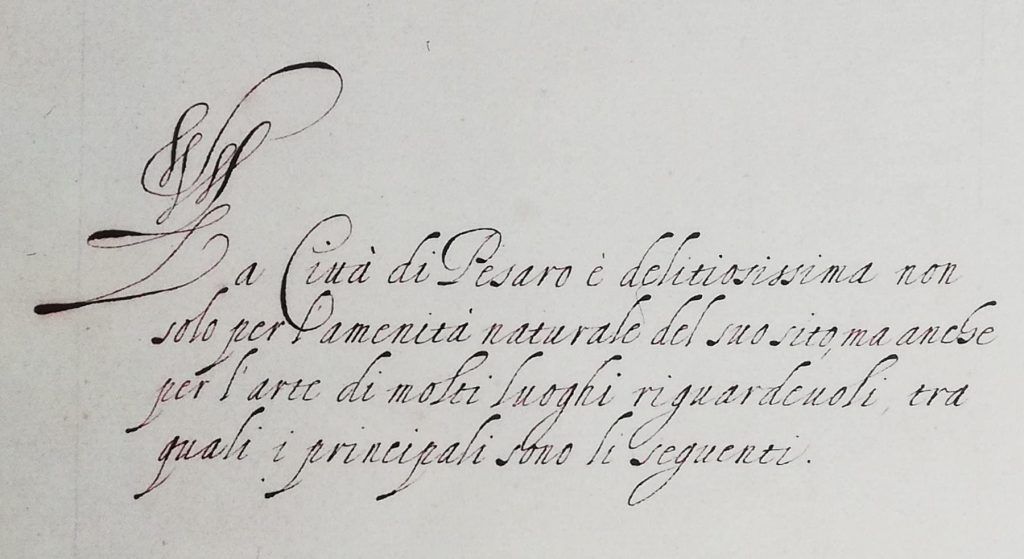 La Città di Pesaro è delitiosissima non
solo per l'amenità naturale del suo sito, ma anche
per l'arte di molti luoghi riguardeuoli, tra
quali i principali sono li seguenti.